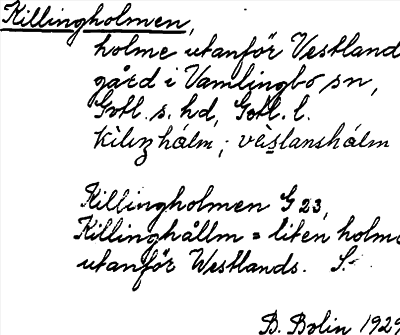 Killingholmen,
holme utanför Vestlands
gård i Vamlingbo sn,
Gotl. s. hd, Gotl. l.
kìlıŋhálm; vèslanshálm
Killingholmen G 23,
Killinghållm = liten holme
utanför Westlands. S.
B. Bolin 1929